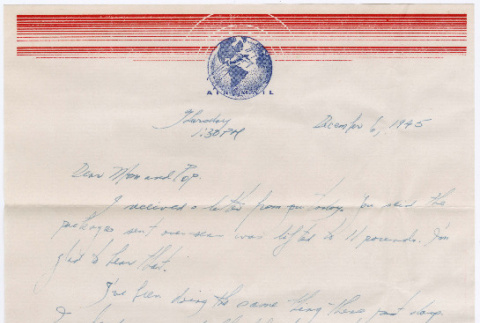 AIR MAIL
Thursday
1:30 PM
December 6, 1945
Dear Mom and Pop,
I received a letter from you today. You said the
packages sent overseas was lifted to 11 pounds. I'm
glad to hear that.
I've been doing the same thing these past days.
I